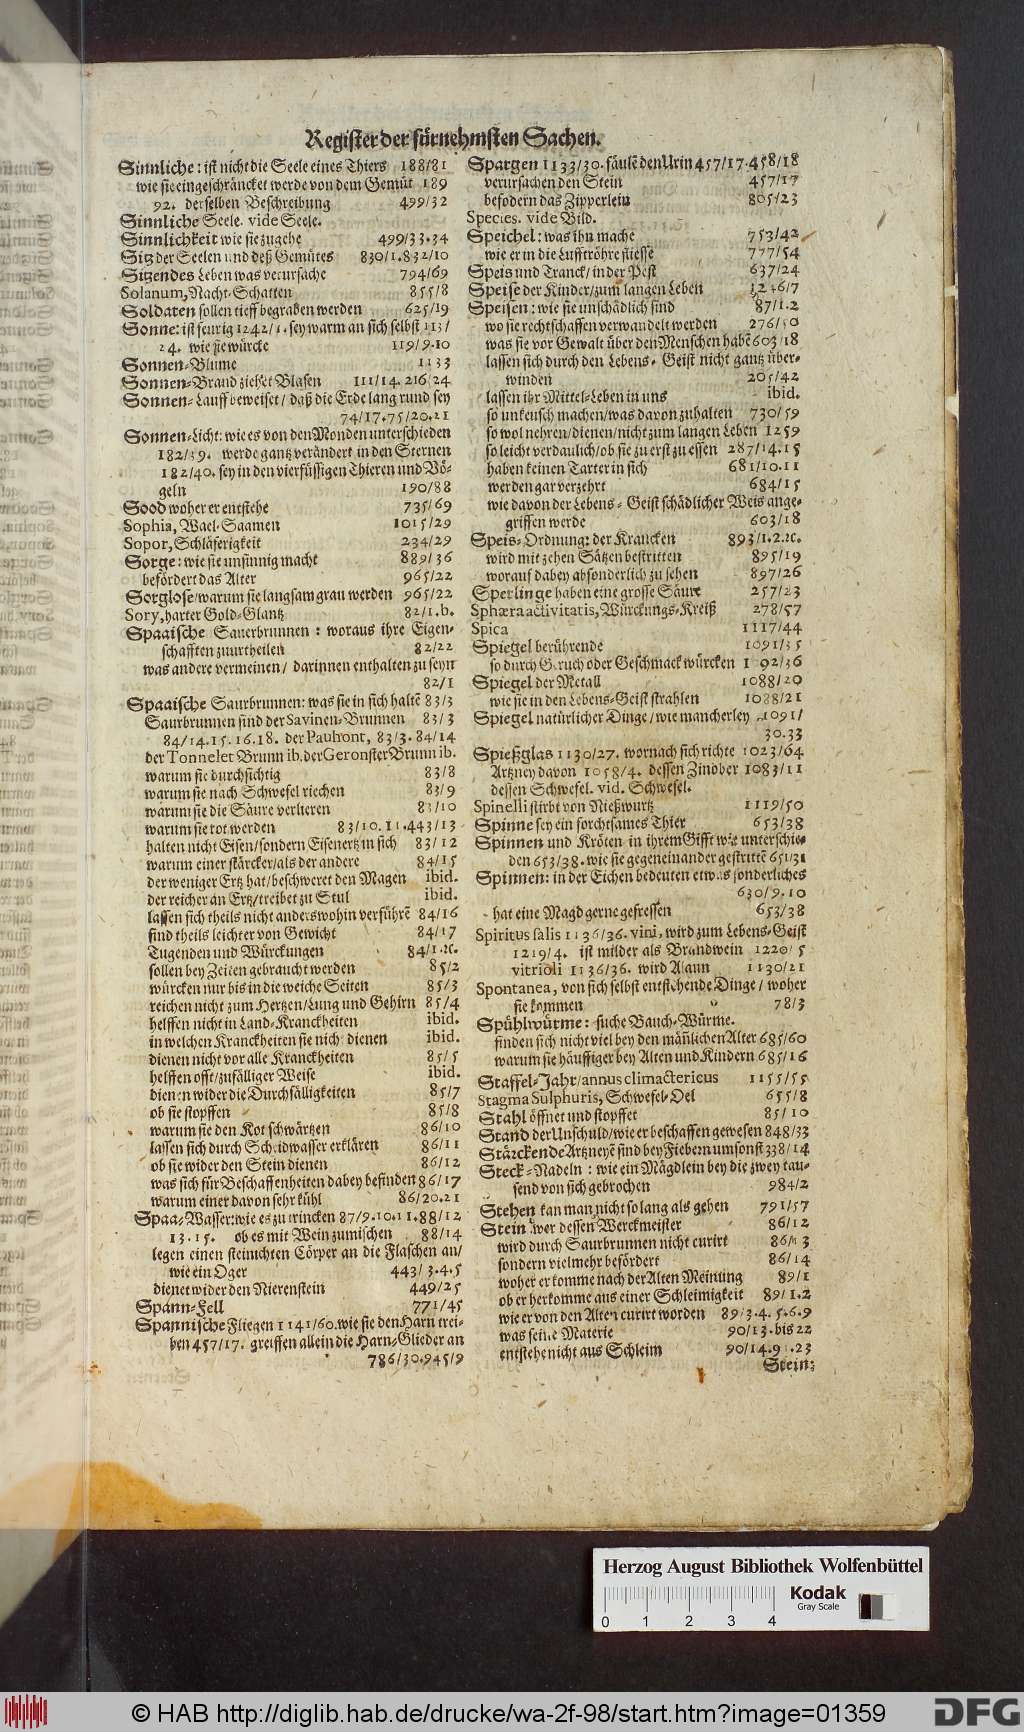 Register der fürnehmsten Sachen.
Sinnliche: ist nicht die Seele eines Thiers 188/81
wie sie eingeschräncket werde von dem Gemüt 189
92. derselben Beschreibung 499/32
Sinnliche Seele. vide Seele.
Sinnlichkeit wie sie zugehe 499/33.34
Sitz der Seelen und deß Gemütes 830/1.832/10
Sitzendes Leben was verursache 794/69
Solanum, Nacht-Schatten 855/8
Soldaten sollen tieff begraben werden 625/19
Sonne: ist feurig 1242/1. sey warm an sich selbst 113/
24. wie sie würcke 119/9.10
Sonnen-Blume 1133
Sonnen-Brand ziehet Blasen 111/14.216/24
Sonnen-Lauff beweiset/ daß die Erde lang rund sey
74/17.75/20.21
Sonnen-Licht: wie es von den Monden unterschieden
182/39. werde gantz verändert in den Sternen
182/40. sey in den vierfüssigen Thieren und Vö-
geln 190/88
Sood woher er entstehe 735/69
Sophia, Wael-Saamen 1015/29
Sopor, Schläferigkeit 234/29
Sorge: wie sie unsinnig macht 889/36
befördert das Alter 965/22
Sorglose/warum sie langsam grau werden 965/22
Sory, harter Gold-Glantz 82/1.b.
Spaaische Sauerbrunnen: woraus ihre Eigen-
schafften zuurtheilen 82/22
was andere vermeinen/ darinnen enthalten zu seyn
82/1
Spaaische Saurbrunnen: was sie in sich haltē 83/3
Saurbrunnen sind der Savinen-Brunnen 83/3
84/14.15.16.18. der Pauhont, 83/3.84/14
der Tonnelet Brunn ib. der Geronster Brunn ib.
warum sie durchsichtig 83/8
warum sie nach Schwefel riechen 83/9
warum sie die Säure verlieren 83/10
warum sie tot werden 83/10.11.443/13
halten nicht Eisen/sondern Eisenertz in sich 83/12
warum einer stärcker/als der andere 84/15
der weniger Ertz hat/beschweret den Magen ibid.
der reicher an Ertz/treibet zu Stul ibid.
lassen sich theils nicht anderswohin verführē 84/16
sind theils leichter von Gewicht 84/17
Tugenden und Würckungen 84/1.ꝛc.
sollen bey Zeiten gebraucht werden 85/2
würcken nur bis in die weiche Seiten 85/3
reichen nicht zum Hertzen/Lung und Gehirn 85/4
helffen nicht in Land-Kranckheiten ibid.
in welchen Kranckheiten sie nicht dienen ibid.
dienen nicht vor alle Kranckheiten 85/5
helffen offt/zufälliger Weise ibid.
dienen wider die Durchfälligkeiten 85/7
ob sie stopffen 85/8
warum sie den Kot schwärtzen 86/10
lassen sich durch Scheidwasser erklären 86/11
ob sie wider den Stein dienen 86/12
was sich für Beschaffenheiten dabey befinden 86/17
warum einer davon sehr kühl 86/20.21
Spaa-Wasser: wie es zu trincken 87/9.10.11.88/12
13.15. ob es mit Wein zumischen 88/14
legen einen steinichten Cörper an die Flaschen an/
wie ein Oger 443/3.4.5
dienet wider den Nierenstein 449/25
Spann-Fell 771/45
Spannische Fliegen 1141/60. wie sie den Harn trei-
ben 457/17. greiffen allein die Harn-Glieder an
786/30.945/9
Spargen 1133/30. fäulē den Urin 457/17.458/18
verursachen den Stein 457/17
befödern das Zipperlein 805/23
Species. vide Bild.
Speichel: was ihn mache 753/42
wie er in die Lufftröhre fliesse 777/54
Speis und Tranck/ in der Pest 637/24
Speise der Kinder/zum langen Leben 1246/7
Speisen: wie sie unschädlich sind 87/1.2
wo sie rechtschaffen verwandelt werden 276/50
was sie vor Gewalt über den Menschen habē 603/18
lassen sich durch den Lebens-Geist nicht gantz über-
winden 205/42
lassen ihr Mittel-Leben in uns ibid.
so unkeusch machen/was davon zuhalten 730/59
so wol nehren/dienen/nicht zum langen Leben 1259
so leicht verdaulich/ob sie zu erst zu essen 287/14.15
haben keinen Tarter in sich 681/10.11
werden gar verzehrt 684/15
wie davon der Lebens-Geist schädlicher Weis ange-
griffen werde 603/18
Speis-Ordnung: der Krancken 893/1.2.ꝛc.
wird mit zehen Sätzen bestritten 895/19
worauf dabey absonderlich zu sehen 897/26
Sperlinge haben eine grosse Säure 257/23
Sphæra activitatis, Würckungs-Kreiß 278/57
Spica 1117/44
Spiegel berührende 1091/35
so durch Geruch oder Geschmack würcken 1092/36
Spiegel der Metall 1088/20
wie sie in den Lebens-Geist strahlen 1088/21
Spiegel natürlicher Dinge/wie mancherley 1091/
30.33
Spießglas 1130/27. wornach sich richte 1023/64
Artzney davon 1058/4. dessen Zinober 1083/11
dessen Schwefel. vid. Schwefel.
Spinelli stirbt von Nießwurtz 1119/50
Spinne sey ein forchtsames Thier 653/38
Spinnen und Kröten in ihrem Gifft wie unterschie-
den 653/38. wie sie gegeneinander gestrittē 651/31
Spinnen: in der Eichen bedeuten etwas sonderliches
630/9.10
hat eine Magd gerne gefressen 653/38
Spiritus salis 1136/36. vini, wird zum Lebens-Geist
1219/4. ist milder als Brandwein 1220/5
vitrioli 1136/36. wird Alaun 1130/21
Spontanea, von sich selbst entstehende Dinge/ woher
sie kommen 78/3
Spühlwürme: suche Bauch-Würme.
finden sich nicht viel bey den mäñlichen Alter 685/60
warum sie häuffiger bey Alten und Kindern 685/16
Staffel-Jahr/annus climactericus 1155/55
Stagma Sulphuris, Schwefel-Oel 655/8
Stahl öffnet und stopffet 85/10
Stand der Unschuld/wie er beschaffen gewesen 848/33
Stärckende Artzneyē sind bey Fiebern umsonst 338/14
Steck-Nadeln: wie ein Mägdlein bey die zwey tau-
send von sich gebrochen 984/2
Stehen kan man nicht so lang als gehen 791/57
Stein wer dessen Werckmeister 86/12
wird durch Saurbrunnen nicht curirt 86/13
sondern vielmehr befördert 86/14
woher er komme nach der Alten Meinung 89/1
ob er herkomme aus einer Schleimigkeit 89/1.2
wie er von den Alten curirt worden 89/3.4.5.6.9
was seine Materie 90/13.bis 22
entstehe nicht aus Schleim 90/14.9 .23
Stein:
Herzog August Bibliothek Wolfenbüttel
Kodak
Gray Scale
0 1 2 3 4
© HAB http://diglib.hab.de/drucke/wa-2f-98/start.htm?image=01359
DFG